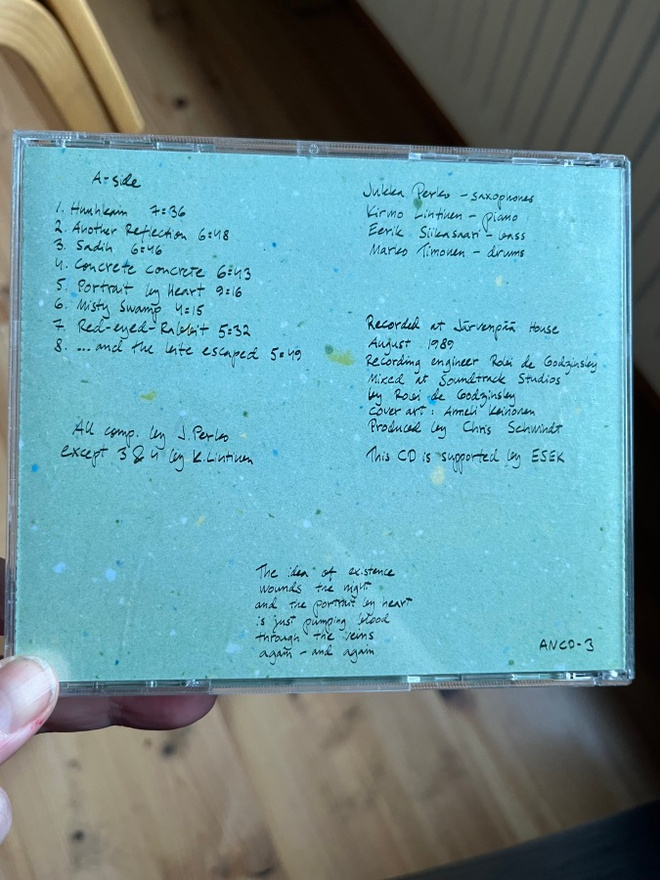 A-side
1. Humhkam 7:36
2. Another Reflection 6:48
3. Sadih 6:46
4. Concrete concrete 6:43
5. Portrait by Heart 9:16
6. Misty Swamp 4:15
7. Red-eyed-Rabbit 5:32
8. ... and the bite escaped 5:49
All comp. by J. Perko
except 3 & 4 by K. Lintinen
Jukka Perko - saxophones
Kirmo Lintinen - piano
Eerik Siikasaari - bass
Marko Timonen - drums
Recorded at Järvenpää House
August 1989
Recording engineer Rosi de Godzinsky
Mixed at Soundtrack Studios
by Rosi de Godzinsky
Cover art: Anneli Keinonen
Produced by Chris Schwindt
This CD is supported by ESEK
The idea of existence
wounds the night
and the portrait by heart
is just pumping blood
through the veins
again - and again
ANCD-3